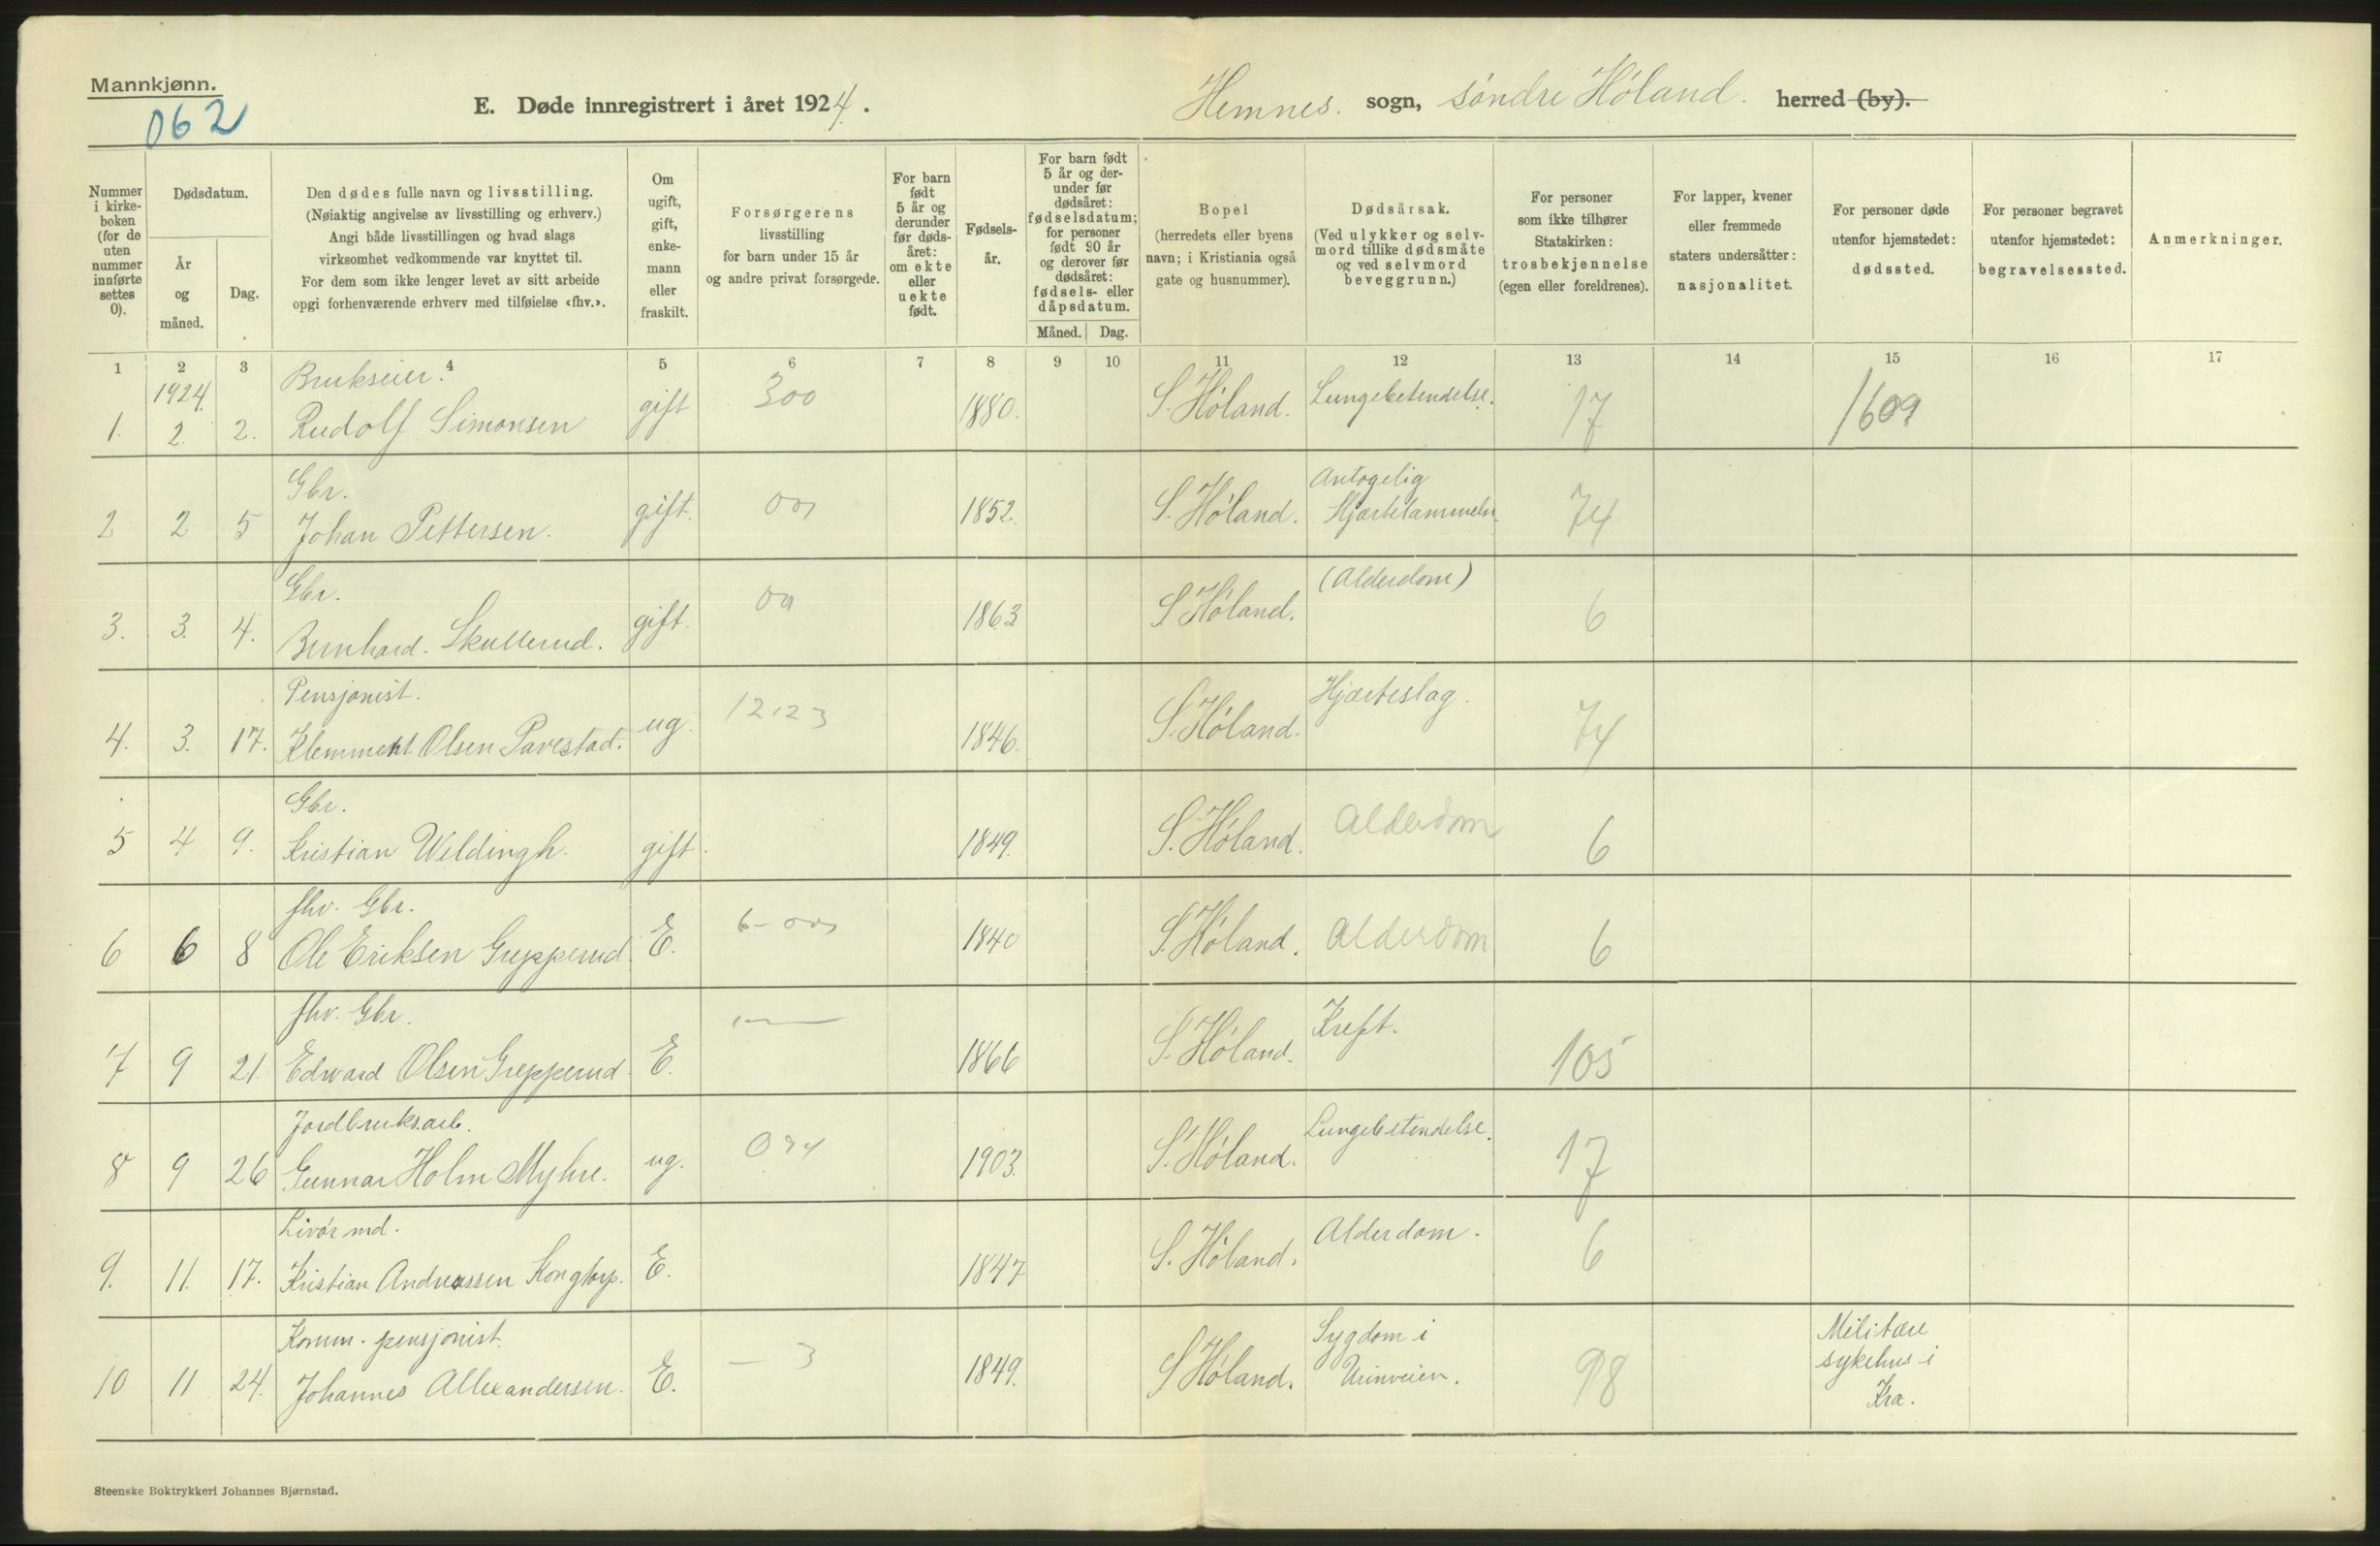 Mannkjønn.
062
E. Døde innregistrert i året 1924.
Hemnes. sogn, søndre Høland. herred (by).
Nummer i kirke-boken (for de uten nummer innførte settes 0).
Dødsdatum.
År og måned.
Dag.
Den dødes fulle navn og livsstilling.
(Nøiaktig angivelse av livsstilling og erhverv.)
Angi både livsstillingen og hvad slags
virksomhet vedkommende var knyttet til.
For dem som ikke lenger levet av sitt arbeide
opgi forhenværende erhverv med tilføielse «fhv.».
Om ugift, gift, enke-mann eller fraskilt.
Forsørgerens
livsstilling
for barn under 15 år
og andre privat forsørgede.
For barn født 5 år og derunder før døds-året: om ekte eller uekte født.
Fødsels-år.
For barn født 5 år og der-under før dødsåret: fødselsdatum; for personer født 90 år og derover før dødsåret: fødsels- eller dåpsdatum.
Måned. Dag.
Bopel
(herredets eller byens
navn; i Kristiania også
gate og husnummer).
Dødsårsak.
(Ved ulykker og selv-
mord tillike dødsmåte
og ved selvmord
beveggrunn.)
For personer
som ikke tilhører
Statskirken:
trosbekjennelse
(egen eller foreldrenes).
For lapper, kvener
eller fremmede
staters undersåtter:
nasjonalitet.
For personer døde
utenfor hjemstedet:
dødssted.
For personer begravet
utenfor hjemstedet:
begravelsessted.
Anmerkninger.
1 2 3 4 5 6 7 8 9 10 11 12 13 14 15 16 17
1924. Brukseier.
1. 2. 2. Rudolf Simonsen gift 300 1880. S. Høland. Lungebetendelse. 17 1609
Gbr. Antagelig
2 2 5 Johan Pettersen. gift. 1852. S. Høland. Hjertelammelse. 74
Gbr. (Alderdom)
3. 3. 4. Bernhard Skullerud. gift. 1863 S Høland. 6
Pensjonist. Hjerteslag.
4. 3. 17. Klemment Olsen Pavestad. ug. 12123 1846. S. Høland. 74
Gbr.
5 4 9. Kristian Weldingh. gift. 1849. S. Høland. Alderdom 6
fhv. Gbr.
6 6 8 Ole Eriksen Grepperud E. 1840 S. Høland. Alderdom 6
fhv. Gbr. Kreft.
7 9 21. Edvard Olsen Grepperud E. 1866 S. Høland. 105
Jordbruksarb. Lungebetendelse.
8 9 26 Gunnar Holm Myhre. ug. 1903. S. Høland. 17
Livørmd. Alderdom.
9. 11. 17. Kristian Andreassen Kongtorp. E. 1847 S. Høland. 6
Komm. pensjonist. Sygdom i Militære
10 11 24. Johannes Allexandersen. E. — 3 1849. S Høland. Urinveien. 98 sykehus i
Kra.
Steenske Boktrykkeri Johannes Bjørnstad.